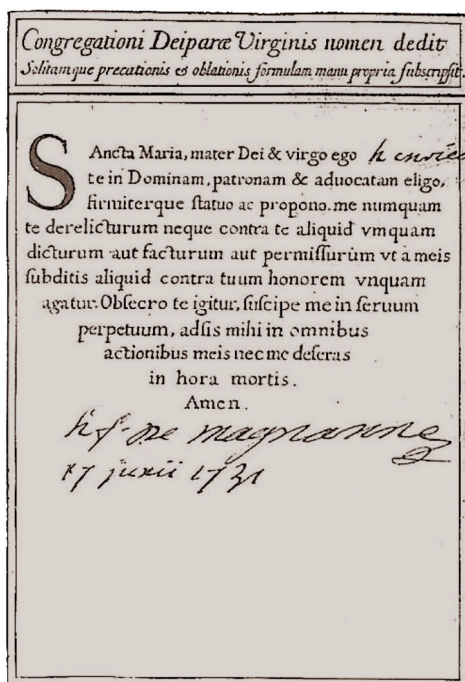 Congregationi Deiparæ Virginis nomen dedit
Solitamque precationis es oblationis formulam manu propria subscripsit.
Sancta Maria, mater Dei & virgo ego
te in Dominam, patronam & aduocatam eligo,
firmiterque statuo ac propono. me numquam
te derelicturum neque contra te aliquid vmquam
dicturum aut facturum aut permissurum vt à meis
subditis aliquid contra tuum honorem vnquam
agatur. Obsecro te igitur, suscipe me in seruum
perpetuum, adsis mihi in omnibus
actionibus meis nec me deseras
in hora mortis.
Amen.
h f. de magnanne
17 junii 1731